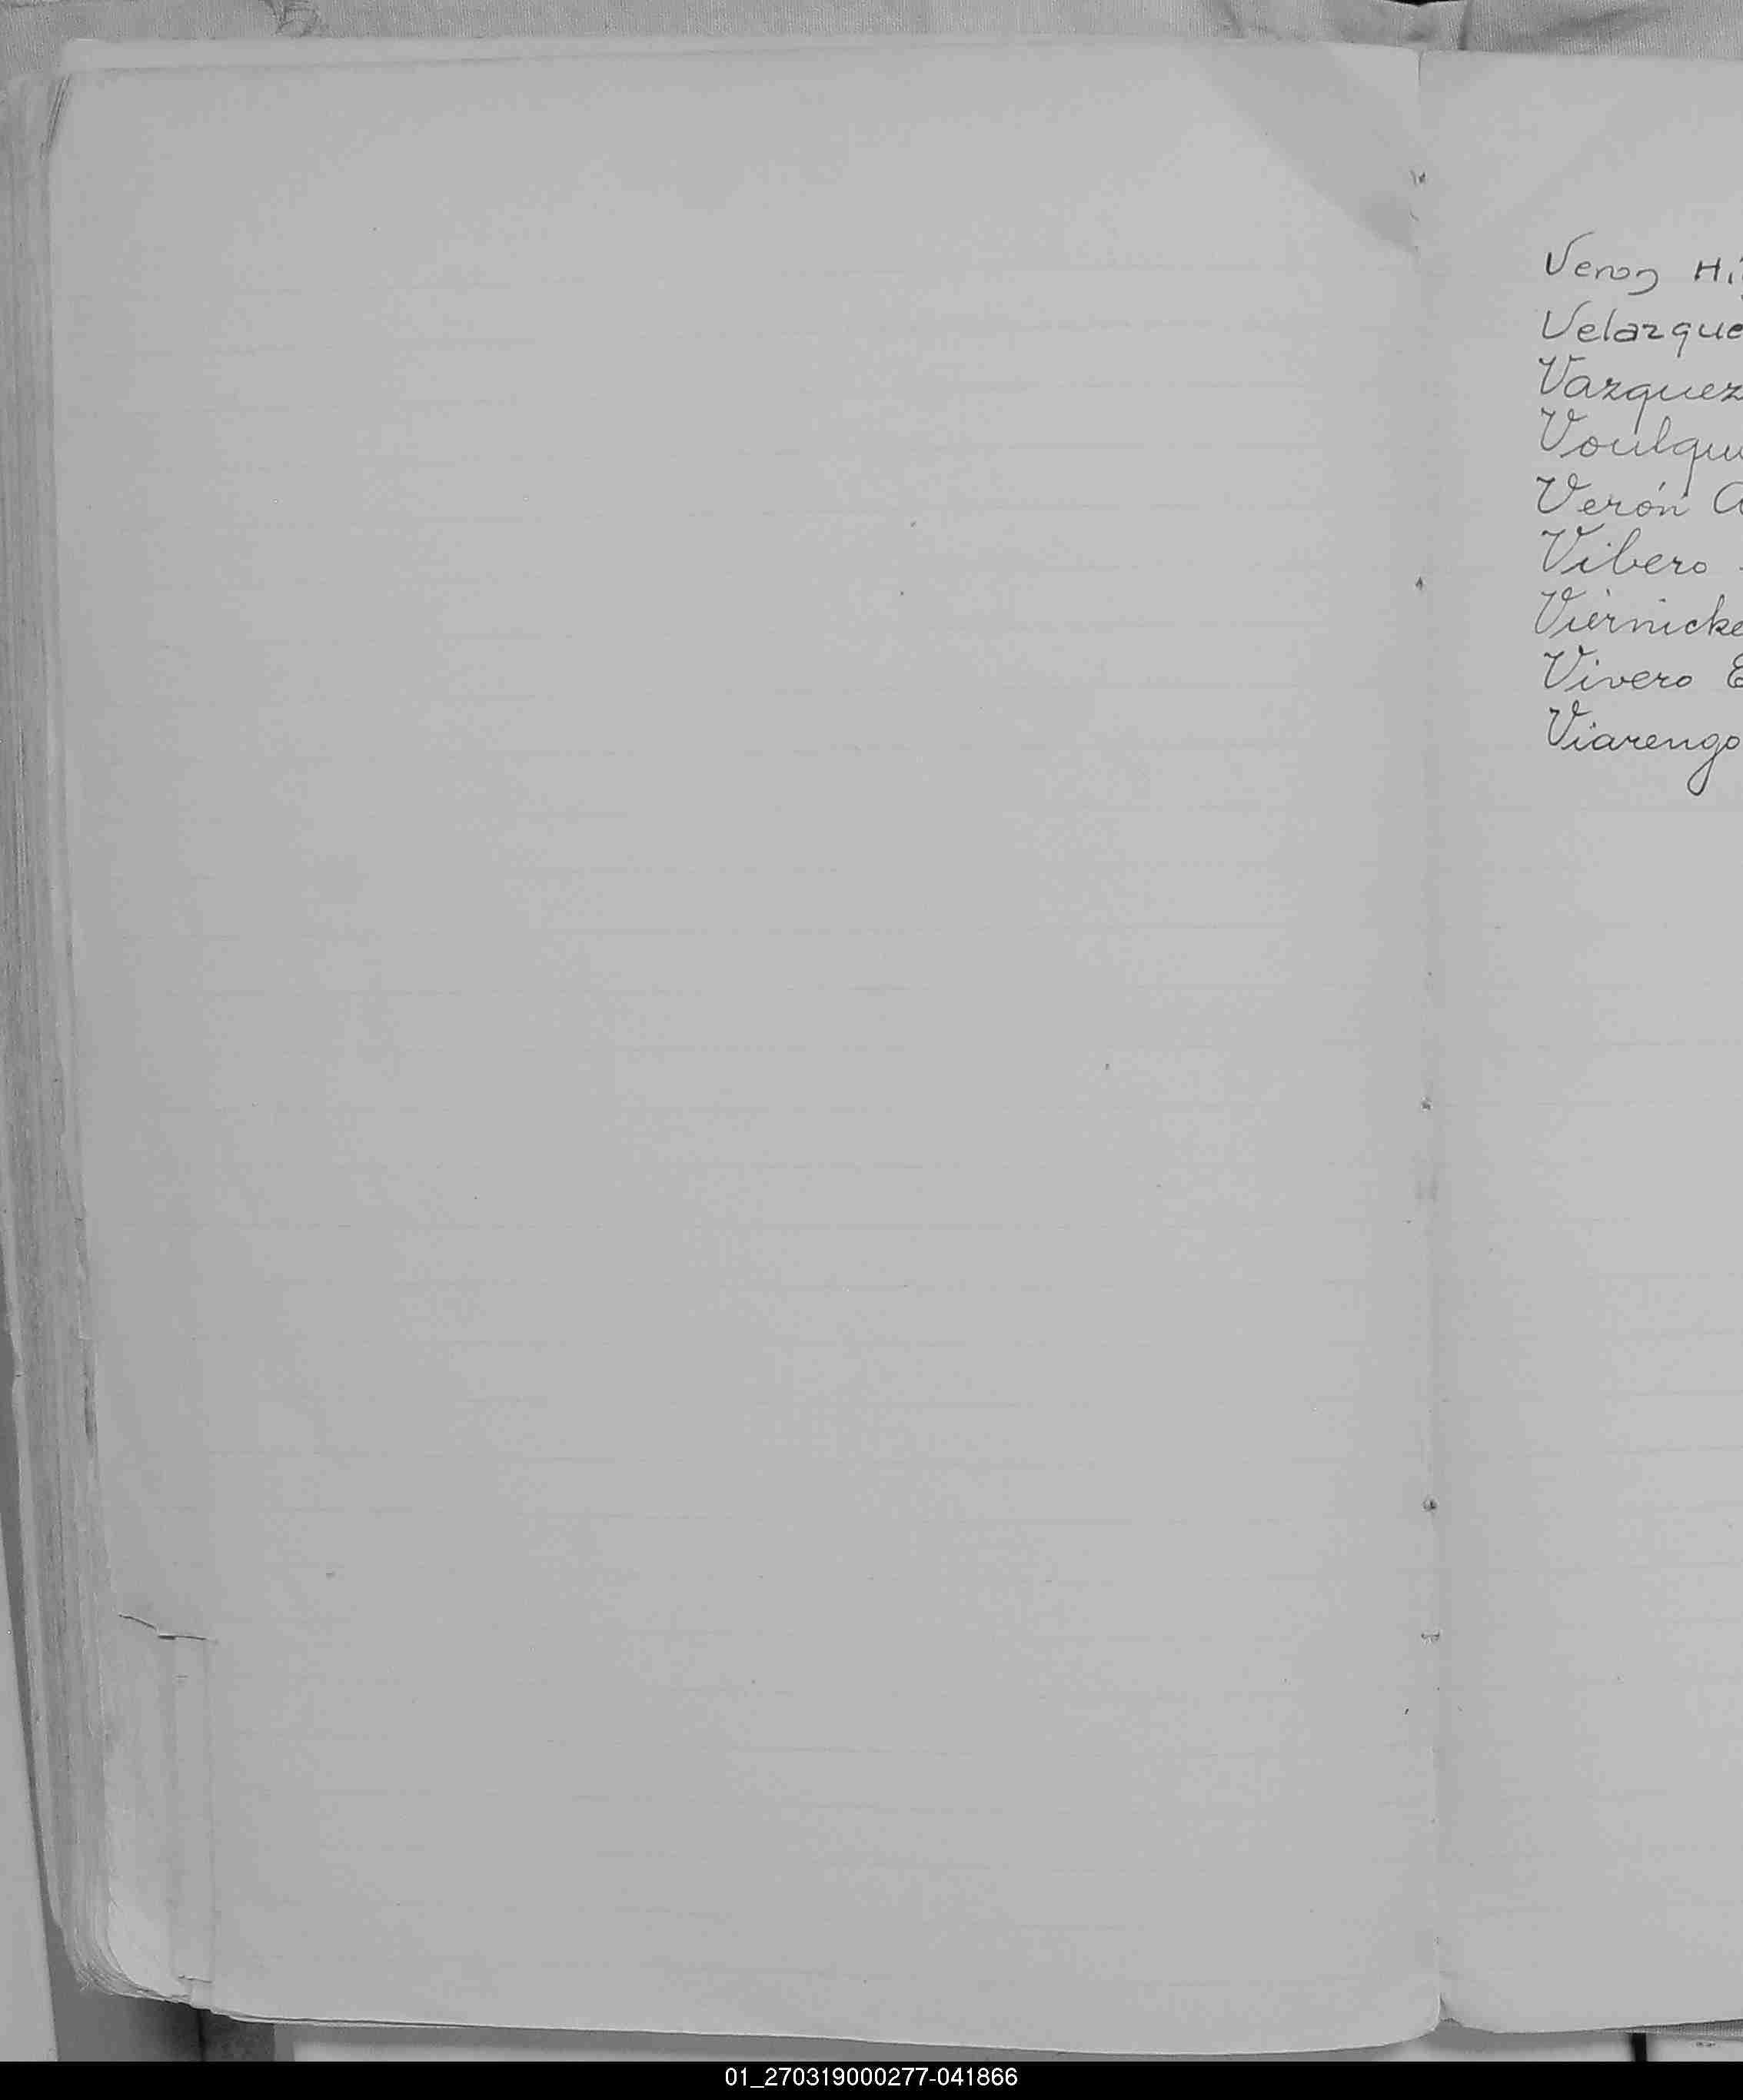 Veron Hi
Velazque
Vazquez
Voulqu
Verón
Vibero
Viernicke
Vivero E
Viarengo
01_270319000277-041866